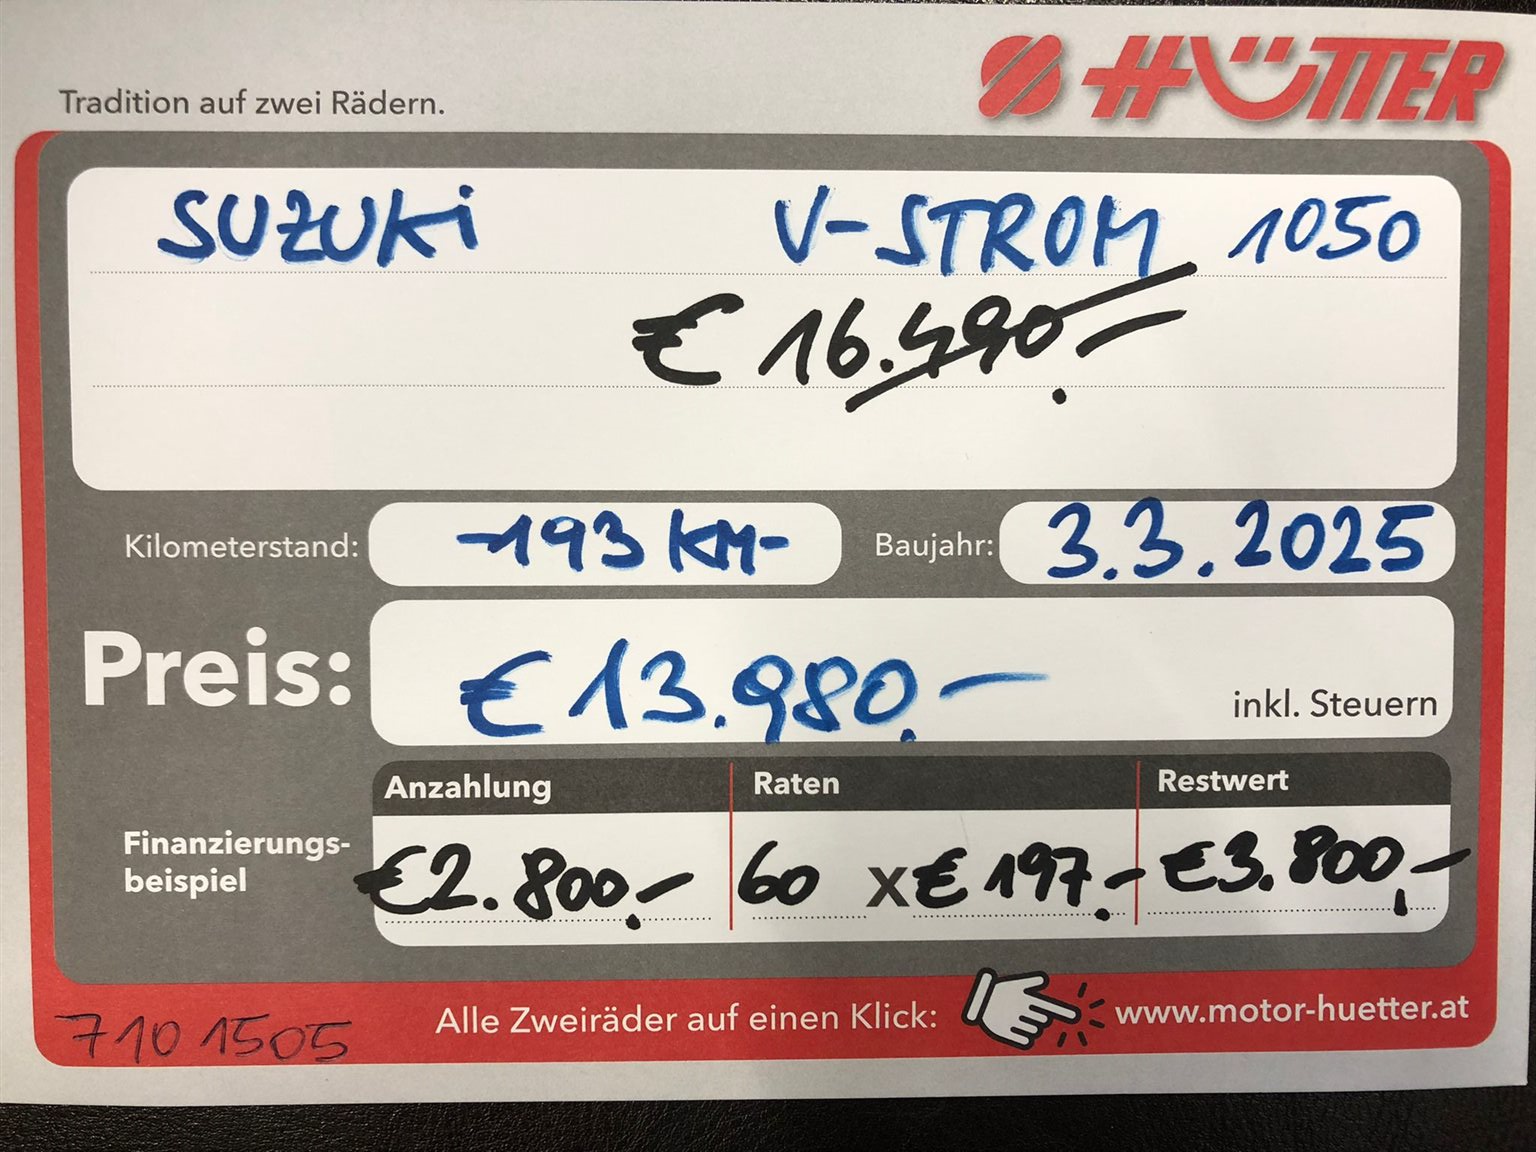 HÜTTER
Tradition auf zwei Rädern.
SUZUKi V-STROM 1050
€ 16.490,-
Kilometerstand: -193 KM- Baujahr: 3.3.2025
Preis: € 13.980,- inkl. Steuern
Anzahlung Raten Restwert
Finanzierungs-
beispiel
€2.800,- 60 x € 197,- €3.800,-
Alle Zweiräder auf einen Klick: www.motor-huetter.at
7101505